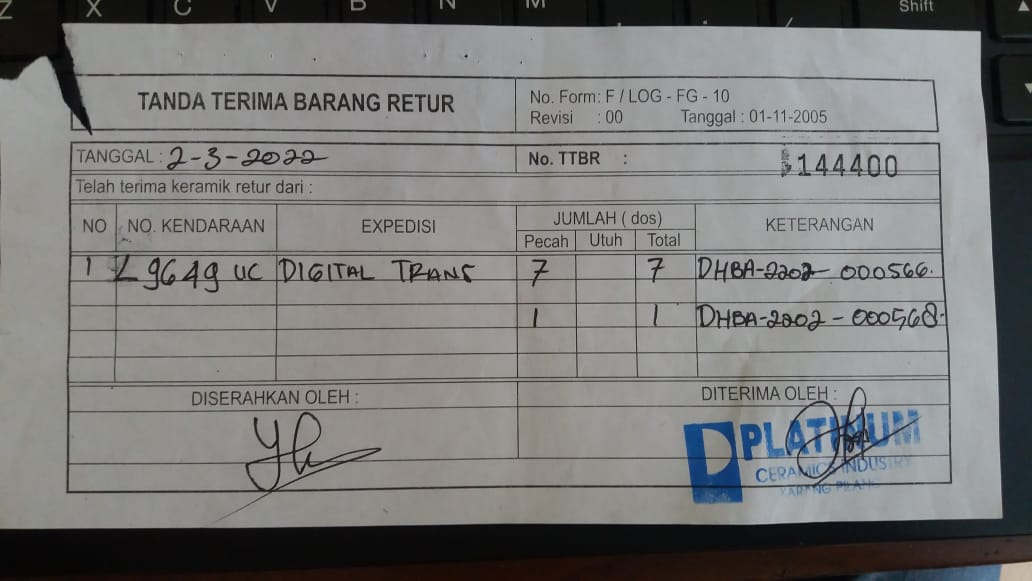 Z X C V B N M Shift
TANDA TERIMA BARANG RETUR
No. Form: F / LOG - FG - 10
Revisi : 00 Tanggal : 01-11-2005
TANGGAL : 2-3-2022 No. TTBR : 144400
Telah terima keramik retur dari :
NO NO. KENDARAAN EXPEDISI JUMLAH ( dos) KETERANGAN
Pecah Utuh Total
1 L 9649 UC DIGITAL TRANS 7 7 DHBA-2202-000566.
1 1 DHBA-2202-000568.
DISERAHKAN OLEH : DITERIMA OLEH :
PLATINUM
CERAMICS INDUSTRY
KARANG PILANG